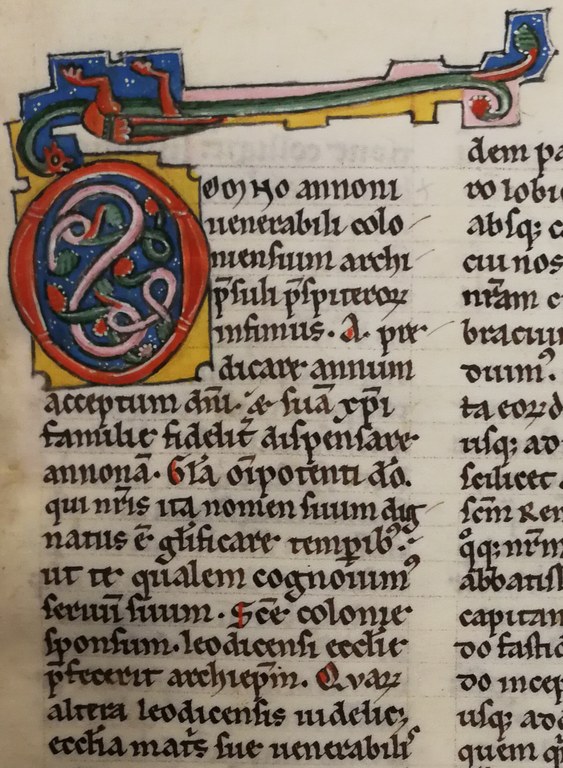 Domno annoni
uenerabili colo
niensium archi
p̄suli p̄spiterorꝝ
infimus. A pre
dicare annum
acceptum dn̄i. & suā xp̄i
familie fidelit̄ dispensare
annonā. Gl̄a om̄ipotenti dō.
qui nr̄is ita nomen suum dig
natus ē gl̄ificare temporibꝰ.
ut te qualem cognouimꝰ
seruū suum. Sc̄e colonie
sponsum. leodicensi eccl̄ie
p̄fecerit archiep̄m. Quarꝝ
altera leodicensis uidelicꝫ
eccl̄ia mat̄s sue uenerabiliꝰ
dem pa
ro iobi
absqꝫ c
ciu nos
nr̄am c
bracium
duimꝰ.
ta eorꝝ d
usqꝫ ad
scilicet
sc̄m Rem
qͦqꝫ nr̄m
abbatis
capitan
do fasti
do incep
usqꝫ ad
quem q